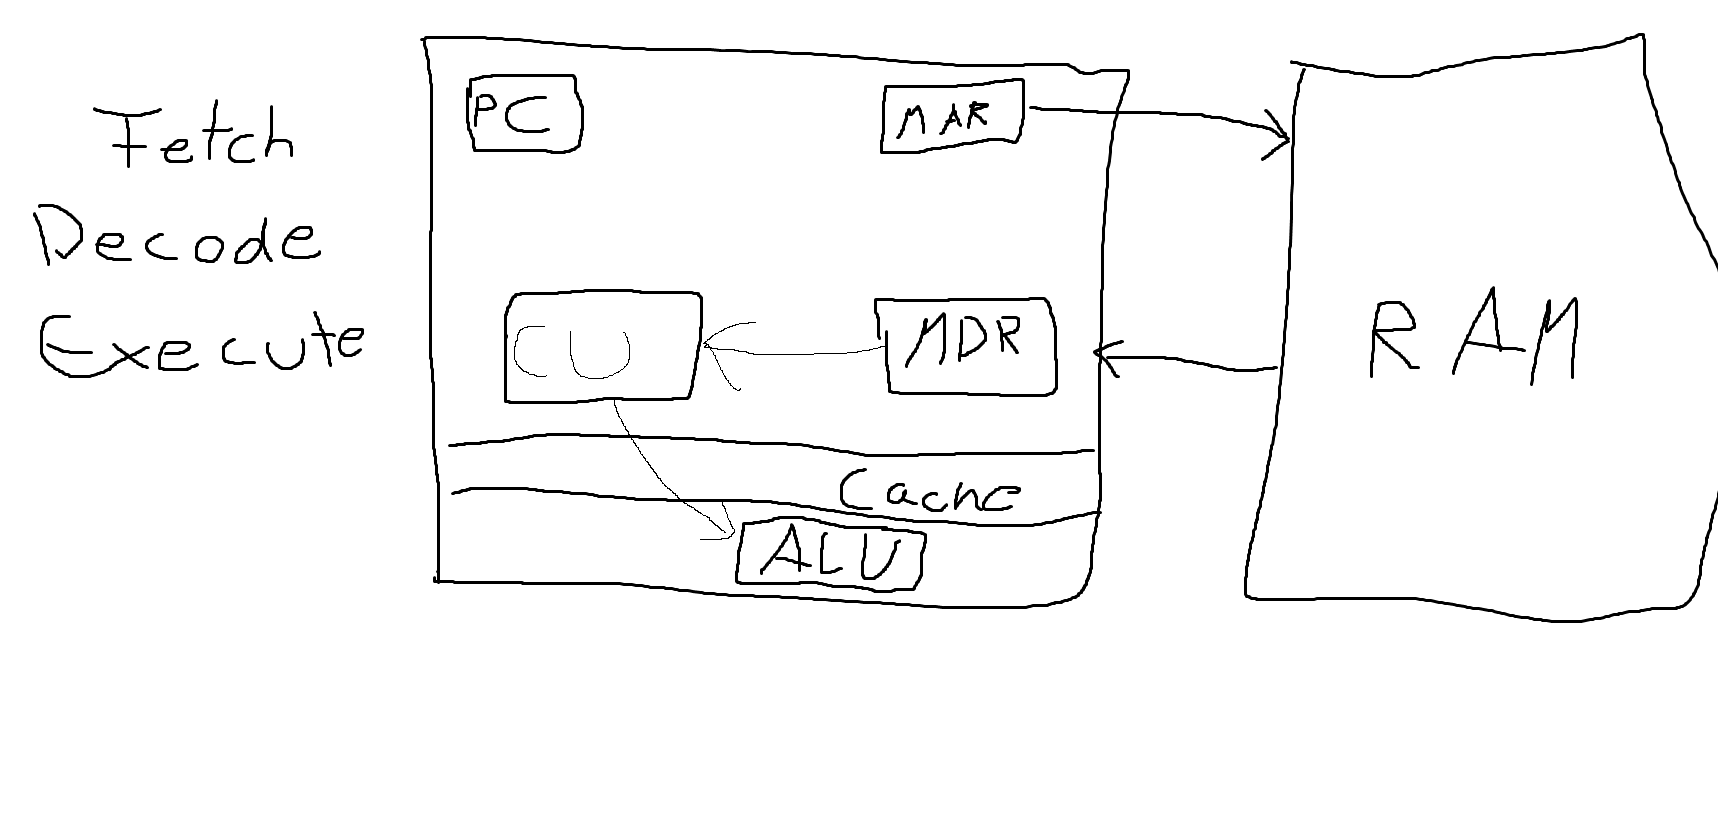 Fetch
Decode
Execute
PC
MAR
CU
MDR
RAM
Cache
ALU